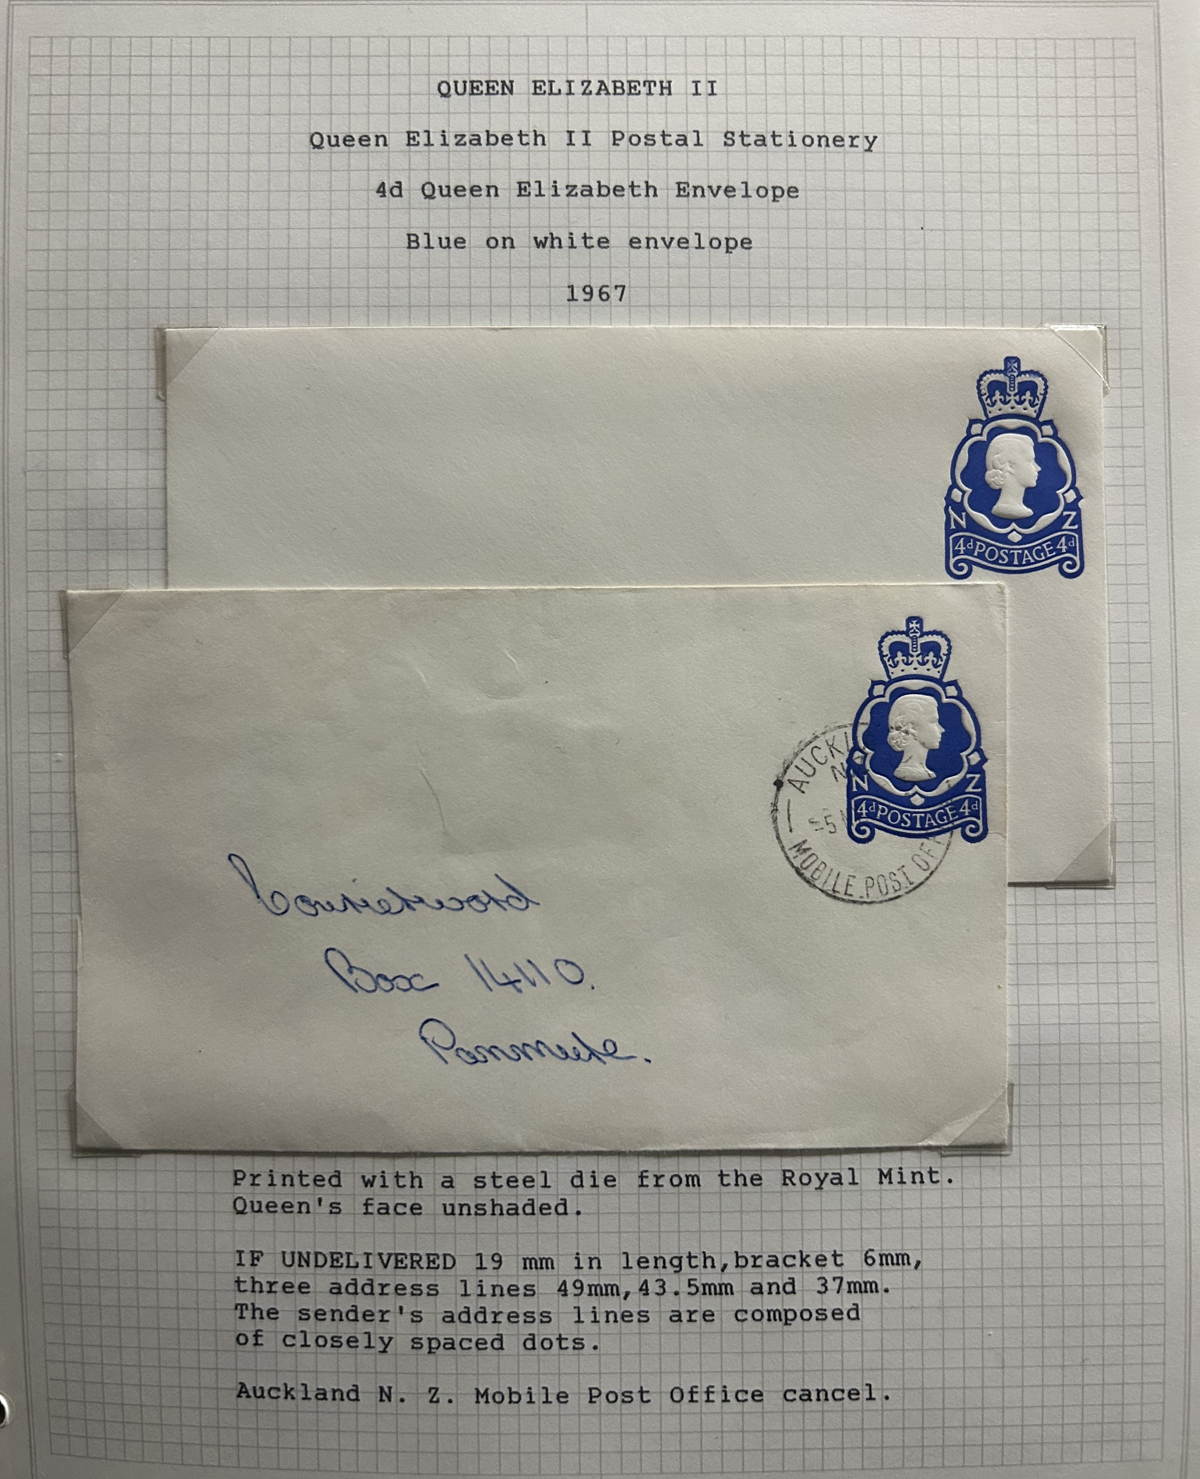 QUEEN ELIZABETH II
Queen Elizabeth II Postal Stationery
4d Queen Elizabeth Envelope
Blue on white envelope
1967
N Z
4d POSTAGE 4d
N Z
4d POSTAGE 4d
MOBILE POST OFF
Box 14110.
Panmure.
Printed with a steel die from the Royal Mint.
Queen's face unshaded.
IF UNDELIVERED 19 mm in length,bracket 6mm,
three address lines 49mm,43.5mm and 37mm.
The sender's address lines are composed
of closely spaced dots.
Auckland N. Z. Mobile Post Office cancel.